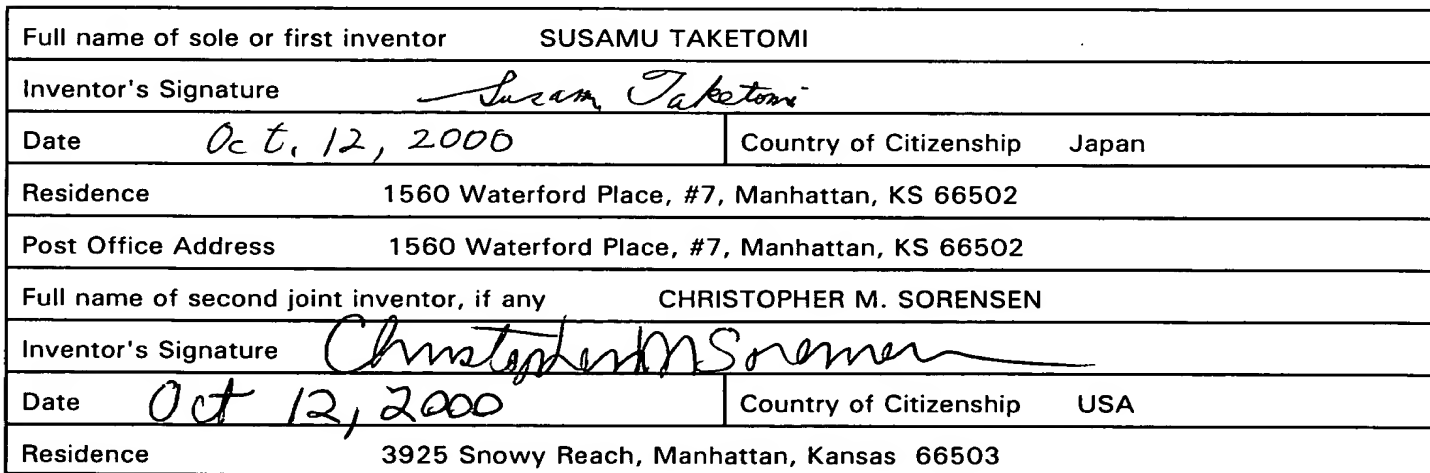 Full name of sole or first inventor SUSAMU TAKETOMI
Inventor's Signature Susam Taketomi
Date Oct. 12, 2000 Country of Citizenship Japan
Residence 1560 Waterford Place, #7, Manhattan, KS 66502
Post Office Address 1560 Waterford Place, #7, Manhattan, KS 66502
Full name of second joint inventor, if any CHRISTOPHER M. SORENSEN
Inventor's Signature Christopher M Sorensen
Date Oct 12, 2000 Country of Citizenship USA
Residence 3925 Snowy Reach, Manhattan, Kansas 66503